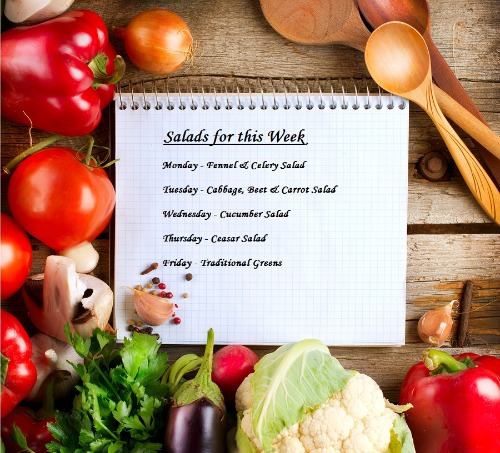 Salads for this Week
Monday - Fennel & Celery Salad
Tuesday - Cabbage, Beet & Carrot Salad
Wednesday - Cucumber Salad
Thursday - Ceasar Salad
Friday - Traditional Greens